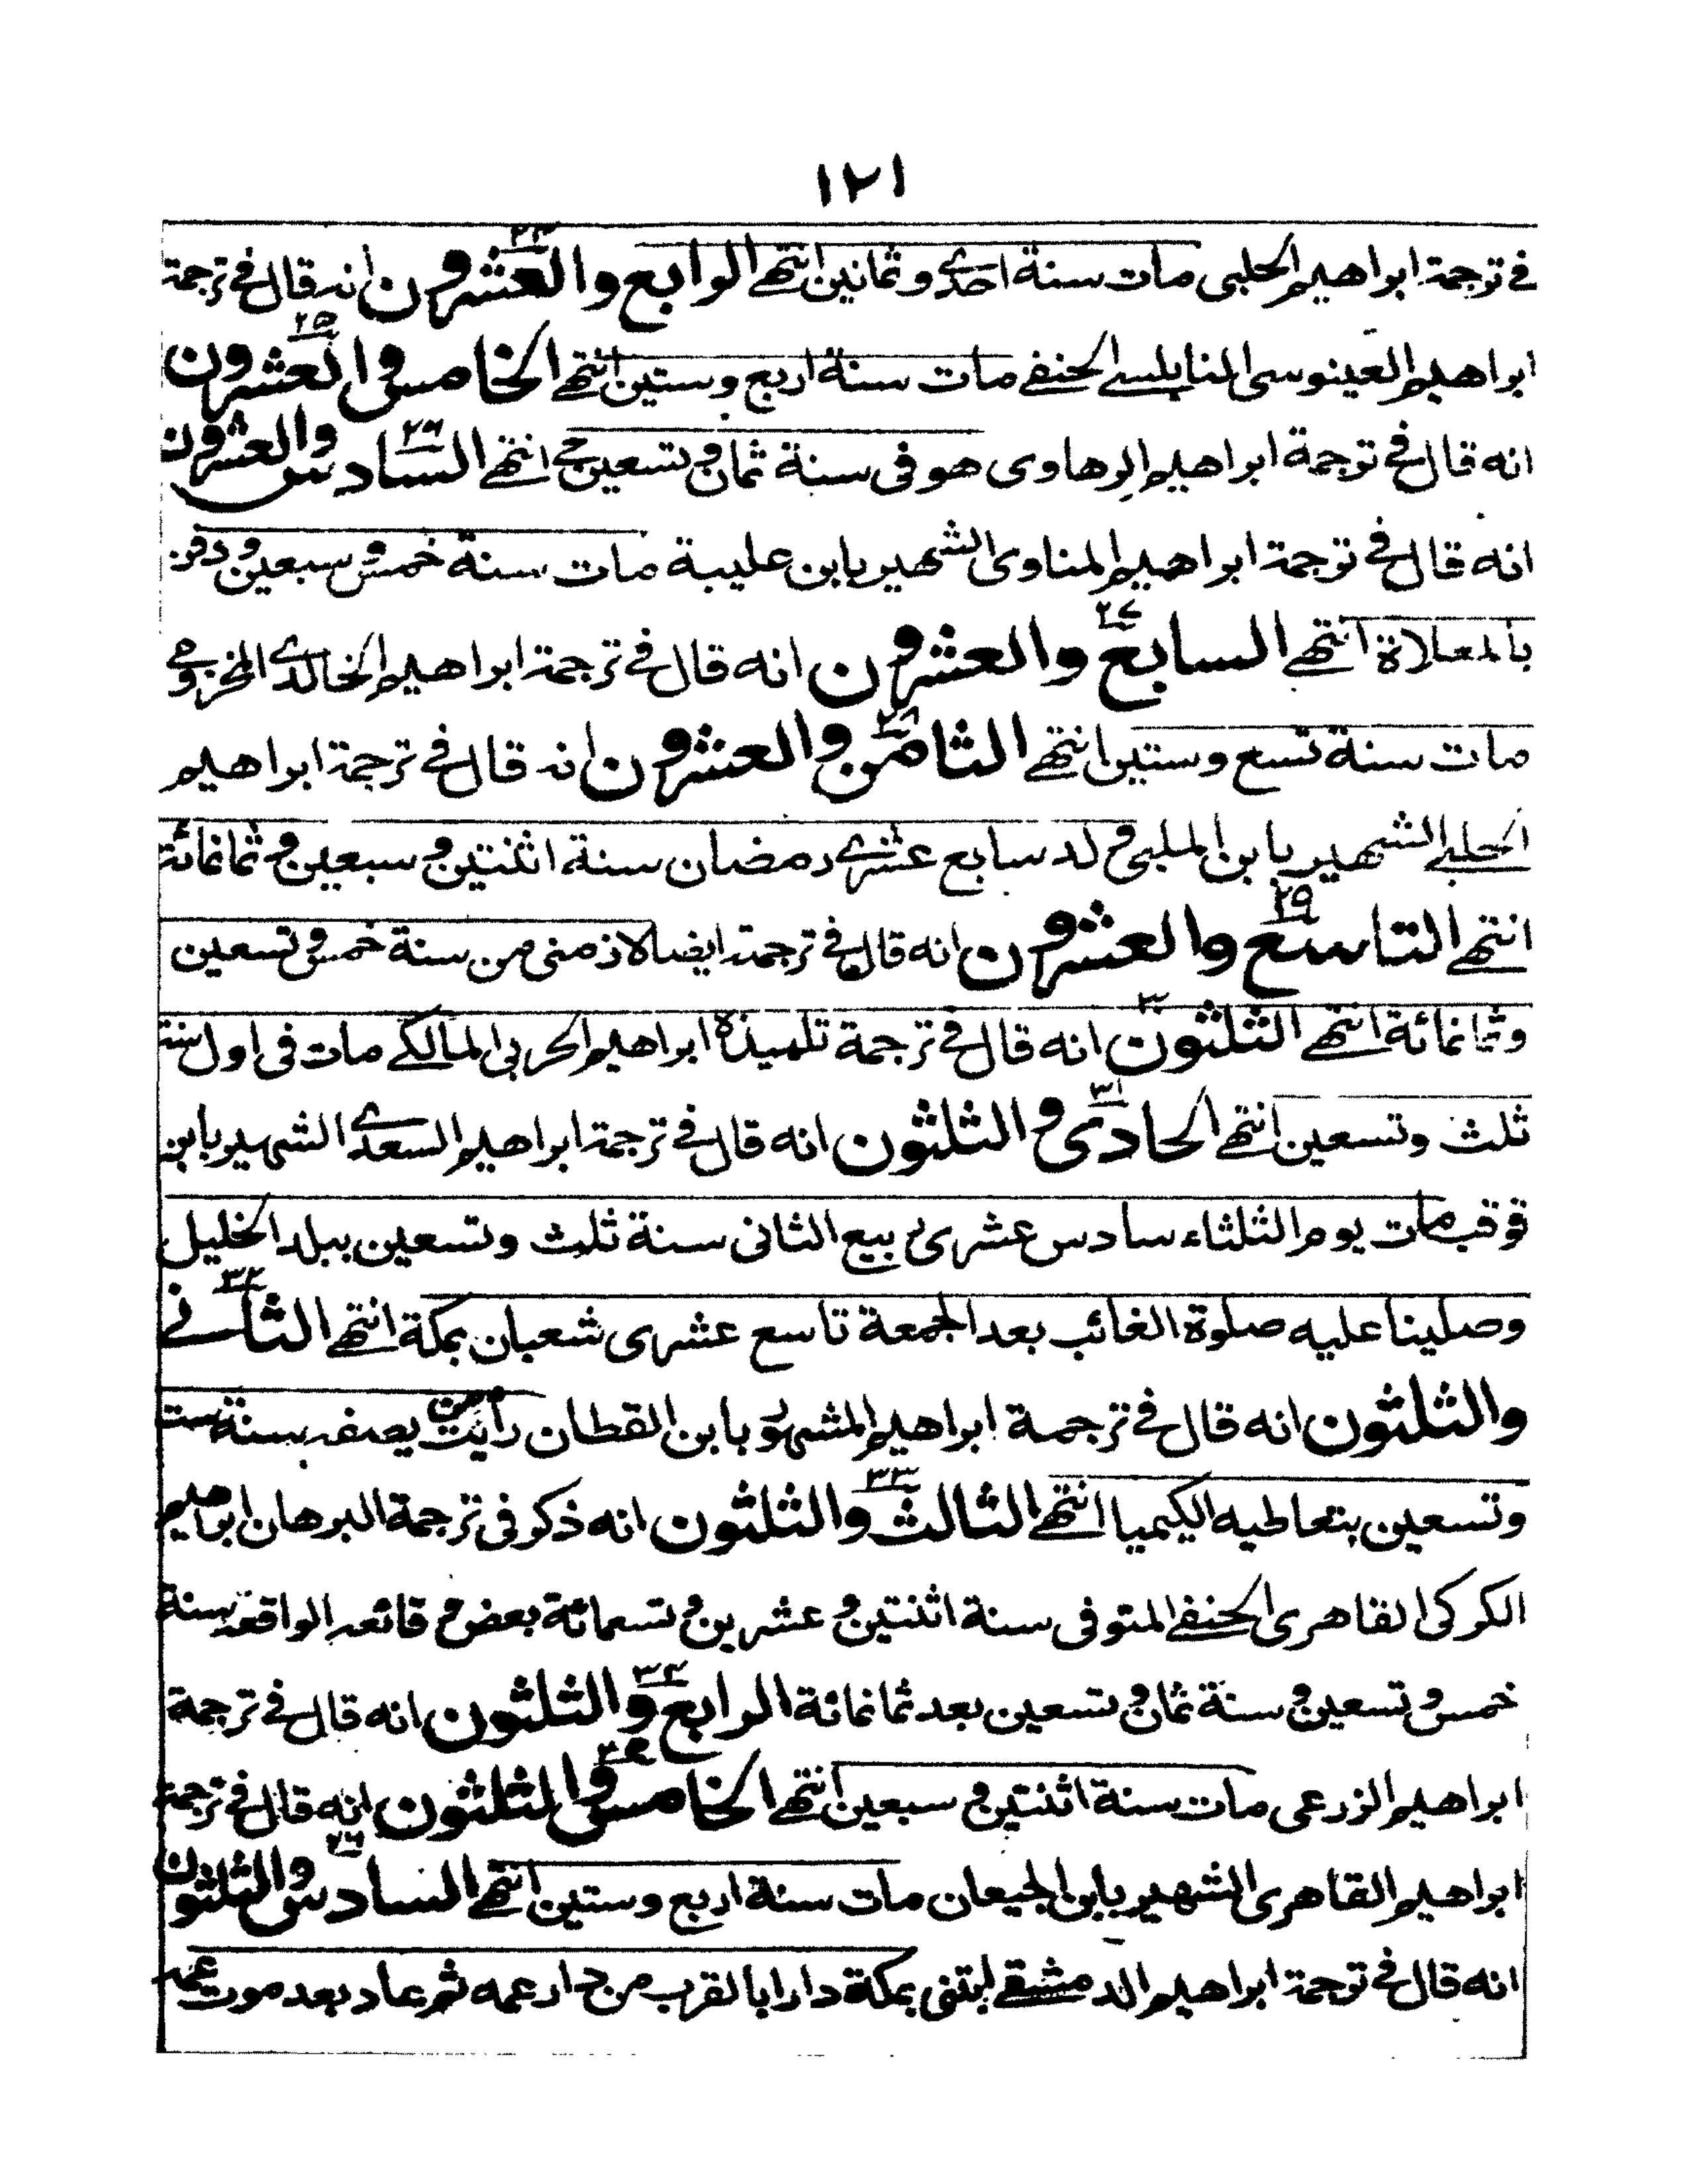 ١٢١
في ترجمة ابراهيم الحلبى مات سنة احدى وثمانين انتهى الرابع والعشرون ٢٤ انه قال في ترجمة
ابراهيم العينوسى النابلسى الحنفى مات سنة اربع وستين انتهى الخامس والعشرون ٢٥
انه قال في ترجمة ابراهيم الرهاوى هو فى سنة ثمان وتسعين حى انتهى السادس والعشرون ٢٦
انه قال في ترجمة ابراهيم المناوى الشهير بابن عليبة مات سنة خمس وسبعين ودفن
بالمعلاة انتهى السابع والعشرون ٢٧ انه قال في ترجمة ابراهيم الخالدى المخزومى
مات سنة تسع وستين انتهى الثامن والعشرون ٢٨ انه قال في ترجمة ابراهيم
الحلبى الشهير بابن الملبى ولد سابع عشرى رمضان سنة اثنتين وسبعين وثمانمائة
انتهى التاسع والعشرون ٢٩ انه قال في ترجمته ايضا لاذمنى من سنة خمس وتسعين
وثمانمائة انتهى الثلثون ٣٠ انه قال في ترجمة تلميذه ابراهيم الحربى المالكى مات فى اول سنة
ثلث وتسعين انتهى الحادى والثلثون ٣١ انه قال في ترجمة ابراهيم السعدى الشهير بابن
قوقب مات يوم الثلثاء سادس عشرى ربيع الثانى سنة ثلث وتسعين ببلد الخليل
وصلينا عليه صلوة الغائب بعد الجمعة تاسع عشرى شعبان بمكة انتهى الثانى ٣٢
والثلثون انه قال في ترجمة ابراهيم المشهور بابن القطان رأيت من يصفه سنة ست
وتسعين بتعاطيه الكيميا انتهى الثالث والثلثون ٣٣ انه ذكر فى ترجمة البرهان ابراهيم
الكركى القاهرى الحنفى المتوفى سنة اثنتين وعشرين وتسعمائة بعض وقائعه الواقعة سنة
خمس وتسعين وسنة ثمان وتسعين بعد ثمانمائة الرابع والثلثون ٣٤ انه قال في ترجمة
ابراهيم الزرعى مات سنة اثنتين وسبعين انتهى الخامس والثلثون ٣٥ انه قال في ترجمة
ابراهيم القاهرى الشهير بابن الجيعان مات سنة اربع وستين انتهى السادس والثلثون ٣٦
انه قال في ترجمة ابراهيم الدمشقى ابتنى بمكة دارا بالقرب من دار عمه ثم عاد بعد موت عمه